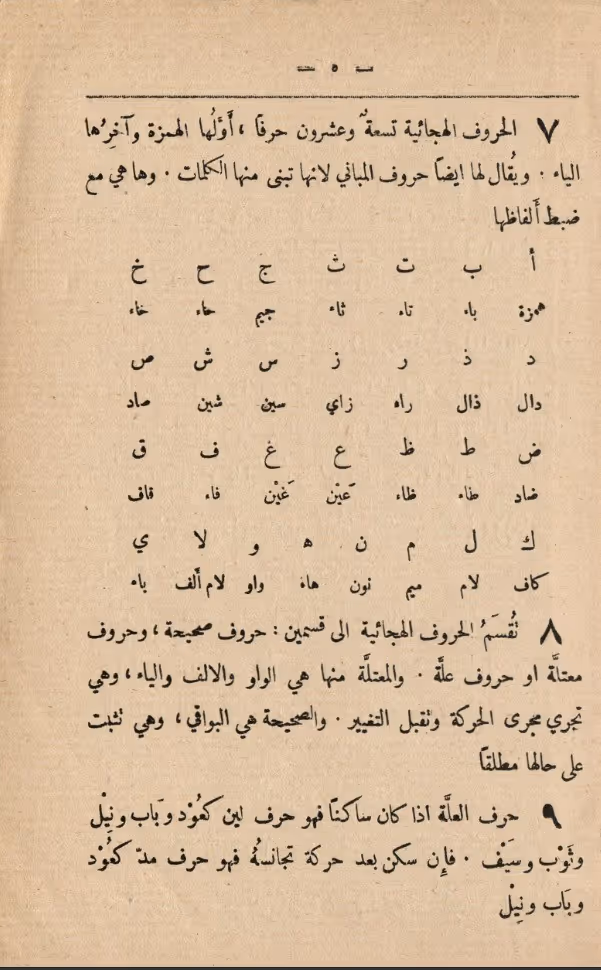 — ٥ —
٧ الحروف الهجائية تسعةٌ وعشرون حرفًا ، أَوَّلُها الهمزة وآخِرُها
الياء . ويُقال لها ايضًا حروف المباني لانها تبنى منها الكلمات . وها هي مع
ضبط أَلفاظها
أ ب ت ث ج ح خ
همزة باء تاء ثاء جيم حاء خاء
د ذ ر ز س ش ص
دال ذال راء زاي سين شين صاد
ض ط ظ ع غ ف ق
ضاد طاء ظاء عَيْن غَيْن فاء قاف
ك ل م ن ه و لا ي
كاف لام ميم نون هاء واو لام أَلف ياء
٨ تُقسَمُ الحروف الهجائية الى قسمين : حروف صحيحة ، وحروف
معتلَّة او حروف علَّة . والمعتلَّة منها هي الواو والالف والياء ، وهي
تجري مجرى الحركة وتقبل التغيير . والصحيحة هي البواقي ، وهي تثبت
على حالها مطلقًا
٩ حرف العلَّة اذا كان ساكنًا فهو حرف لين كعُوْد وبَاب ونِيْل
وثَوْب وسَيْف . فإِن سكن بعد حركة تجانسهُ فهو حرف مدّ كعُوْد
وبَاب ونِيْل